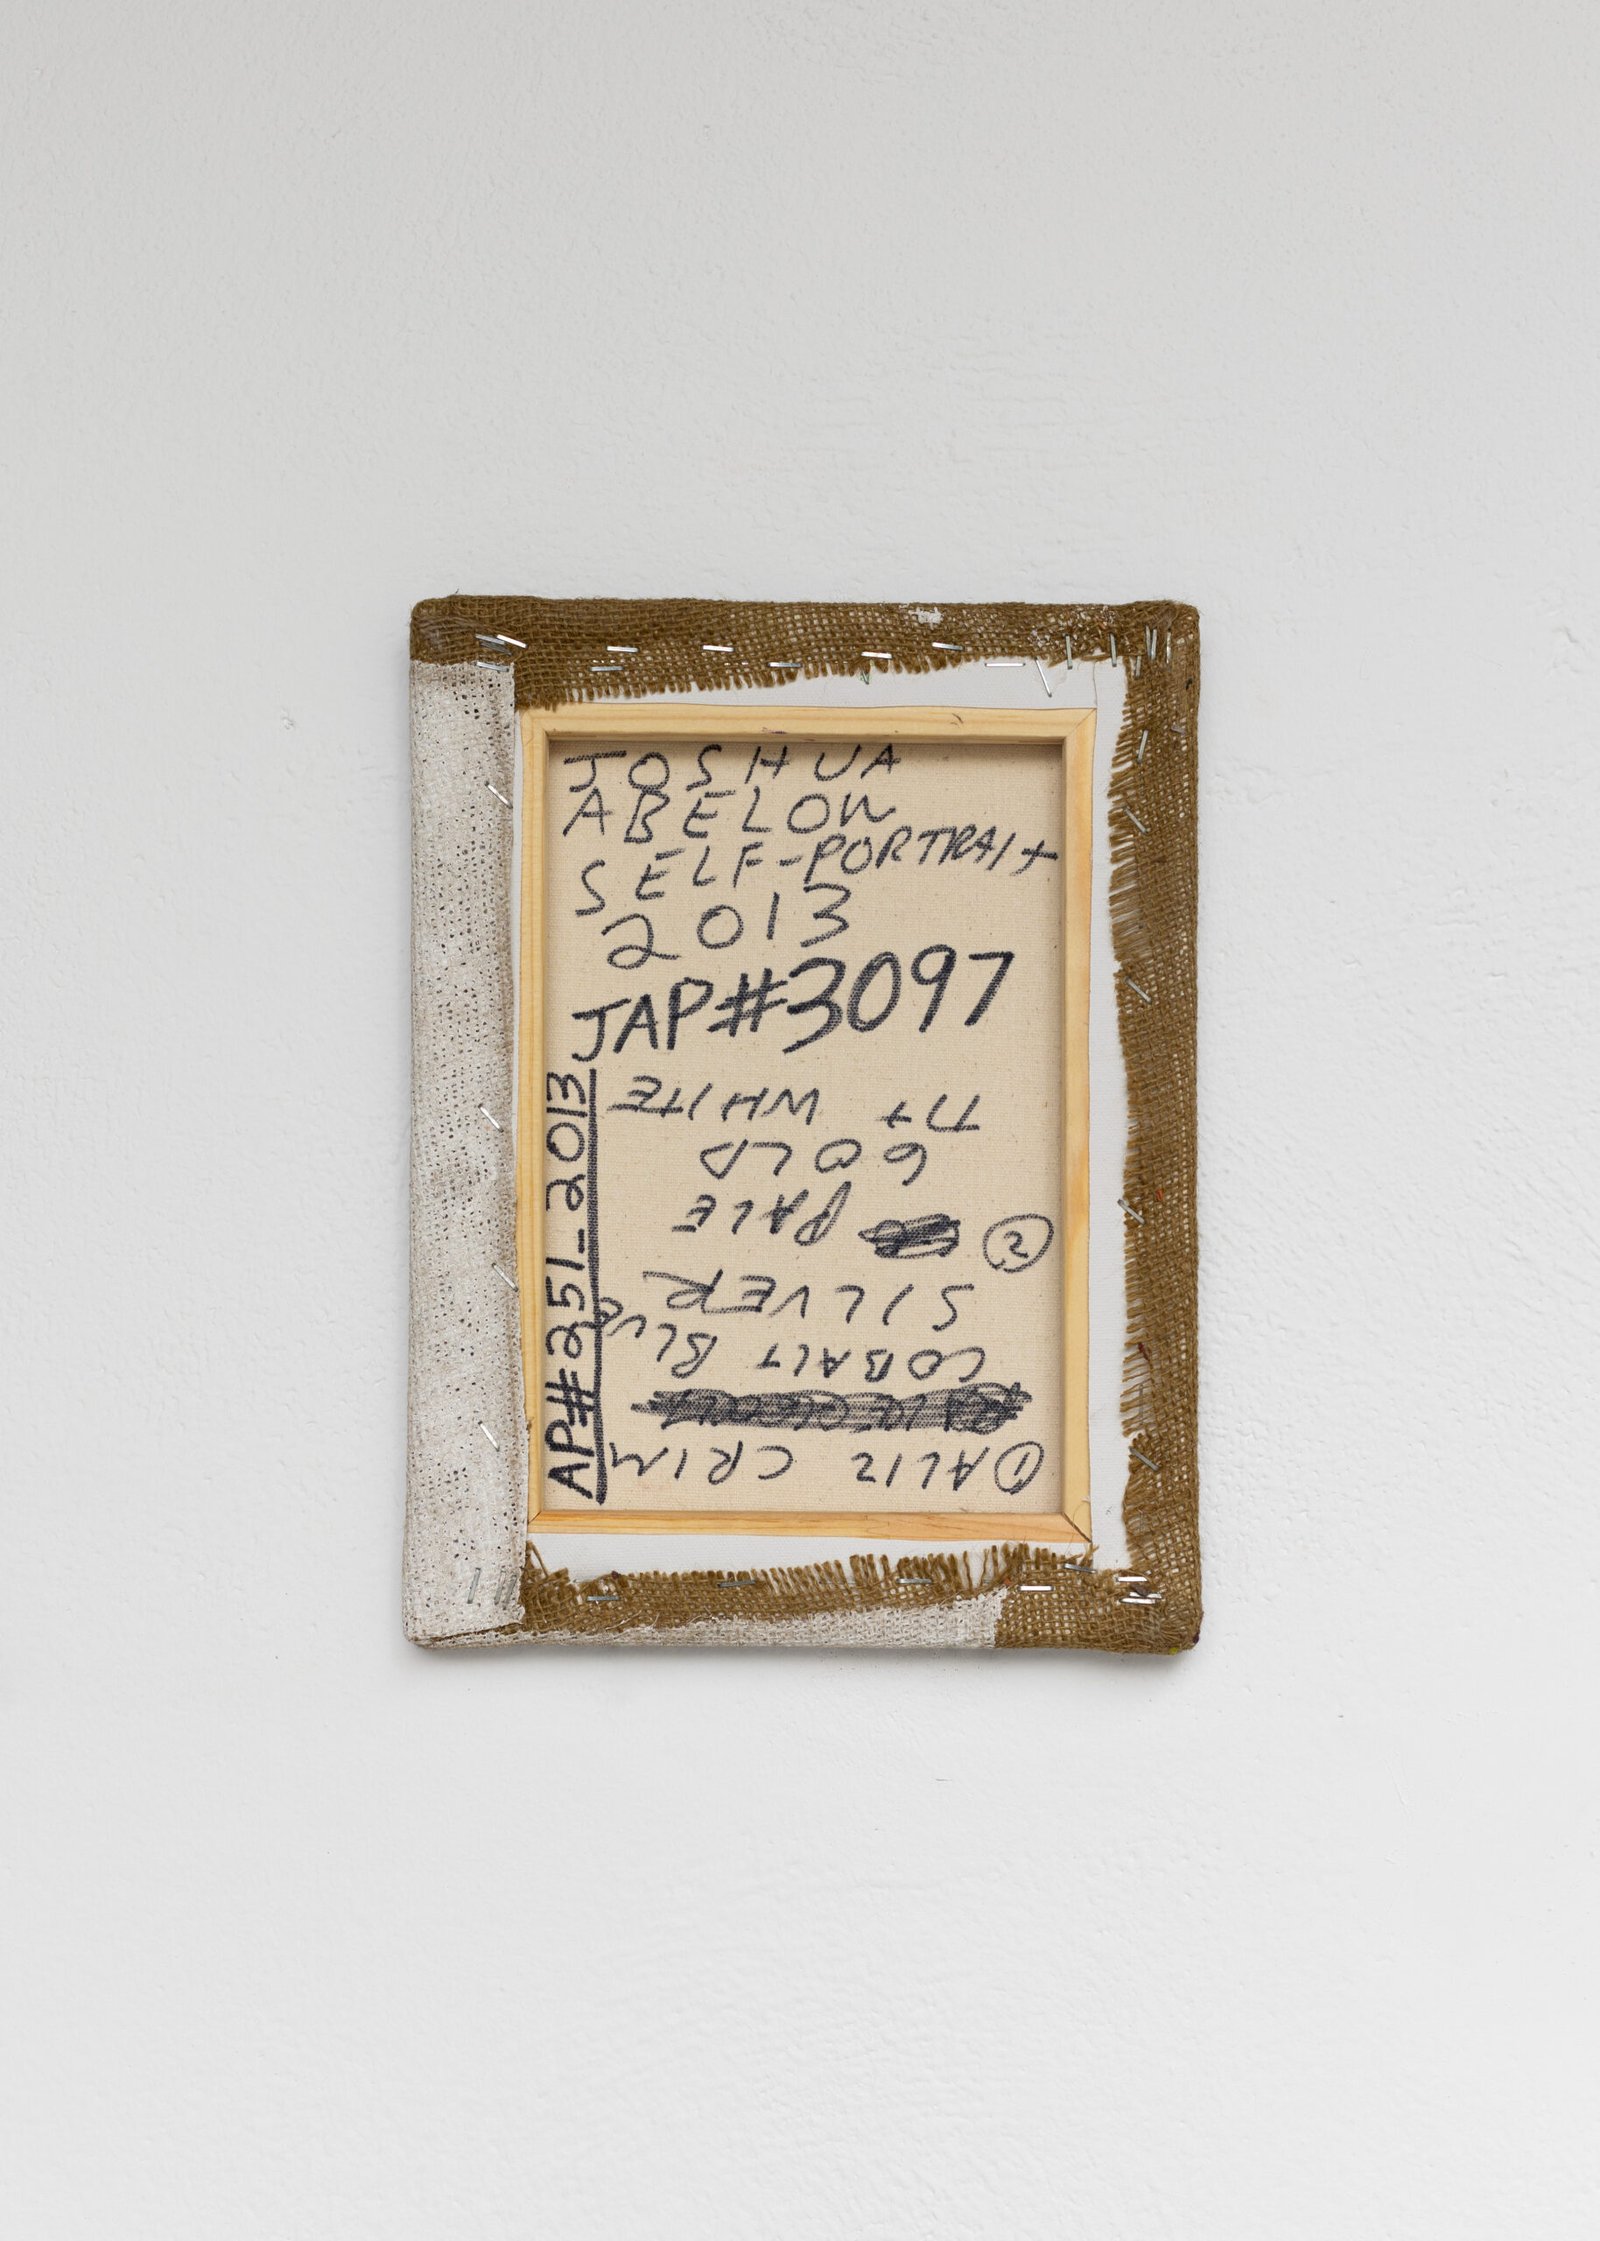 JOSHUA
ABELOW
SELF-PORTRAIT
2013
JAP#3097
AP#251_2013
① ALIZ CRIM
COBALT BLUE
SILVER
② PALE
GOLD
TIT WHITE